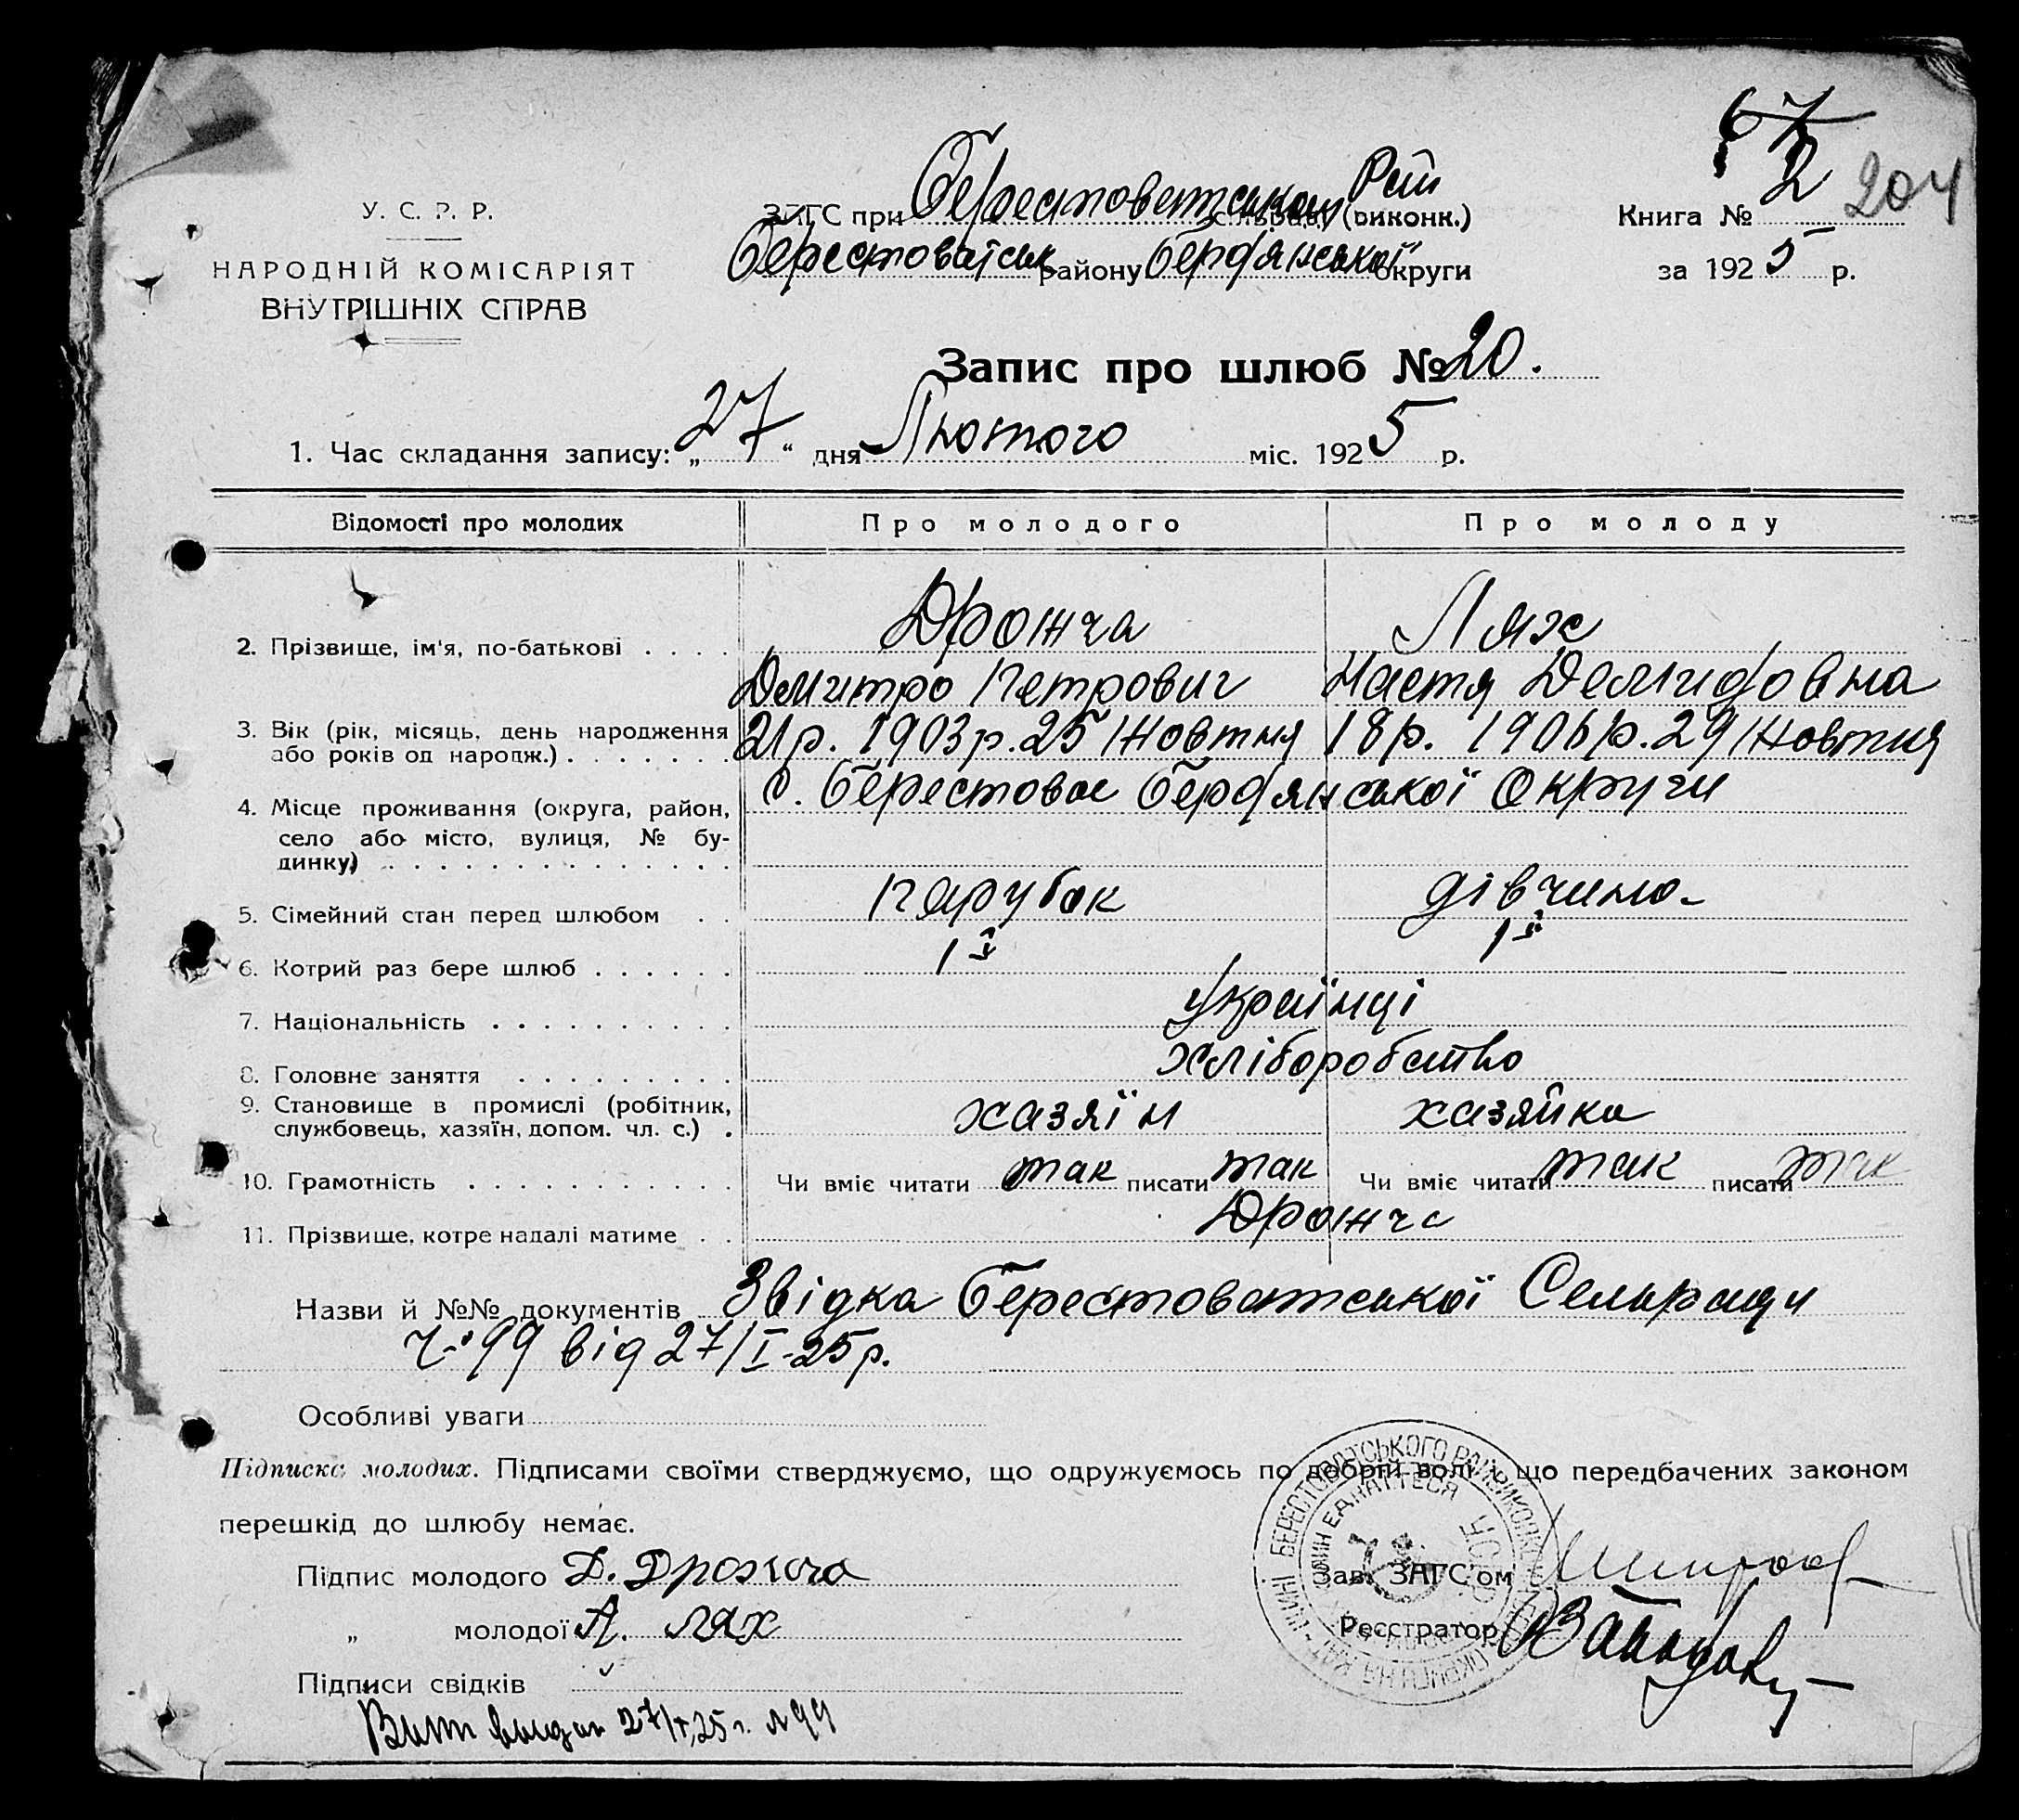 67
2
204
У. С. Р. Р.
НАРОДНІЙ КОМІСАРІЯТ
ВНУТРІШНІХ СПРАВ
ЗАГС при Берестоватськом Рай сільраді (виконк.)
Берестоватськ району Бердянської округи
Книга №
за 1925 р.
Запис про шлюб № 20.
1. Час складання запису: „27“ дня Лютого міс. 1925 р.
Відомості про молодих Про молодого Про молоду
Дрожча Лях
2. Прізвище, ім'я, по-батькові . . . .
Дмитро Петрович Настя Демидовна
3. Вік (рік, місяць, день народження 21р. 1903р. 25 Жовтня 18р. 1906р. 29 Жовтня
або років од народж.) . . . . . . .
с. Берестовое Бердянської Округи
4. Місце проживання (округа, район,
село або місто, вулиця, № бу-
динку) . . . . . . . . . . . . . .
5. Сімейний стан перед шлюбом . . парубок дівчина
6. Котрий раз бере шлюб . . . . . . 1й 1й
7. Національність . . . . . . . . . . Українці
8. Головне заняття . . . . . . . . . хліборобство
9. Становище в промислі (робітник,
службовець, хазяїн, допом. чл. с.) . хазяїн хазяйка
10. Грамотність . . . . . . . . . . . Чи вміє читати так писати так Чи вміє читати так писати так
11. Прізвище, котре надалі матиме . . Дрожча
Назви й №№ документів Звідка Берестоватської Сельради
ч. 99 від 27/I-25р.
Особливі уваги
Підписка молодих. Підписами своїми стверджуємо, що одружуємось по добрій волі й що передбачених законом
перешкід до шлюбу немає.
Підпис молодого Д. Дрожча
Зав. ЗАГС'ом
„ молодої А. Лях
Реєстратор
Підписи свідків
27/I,25 г. №99
БЕРЕСТОВАТСЬКОГО РАЙВИКОНК
ЄДНАЙТЕСЯ
УСРР